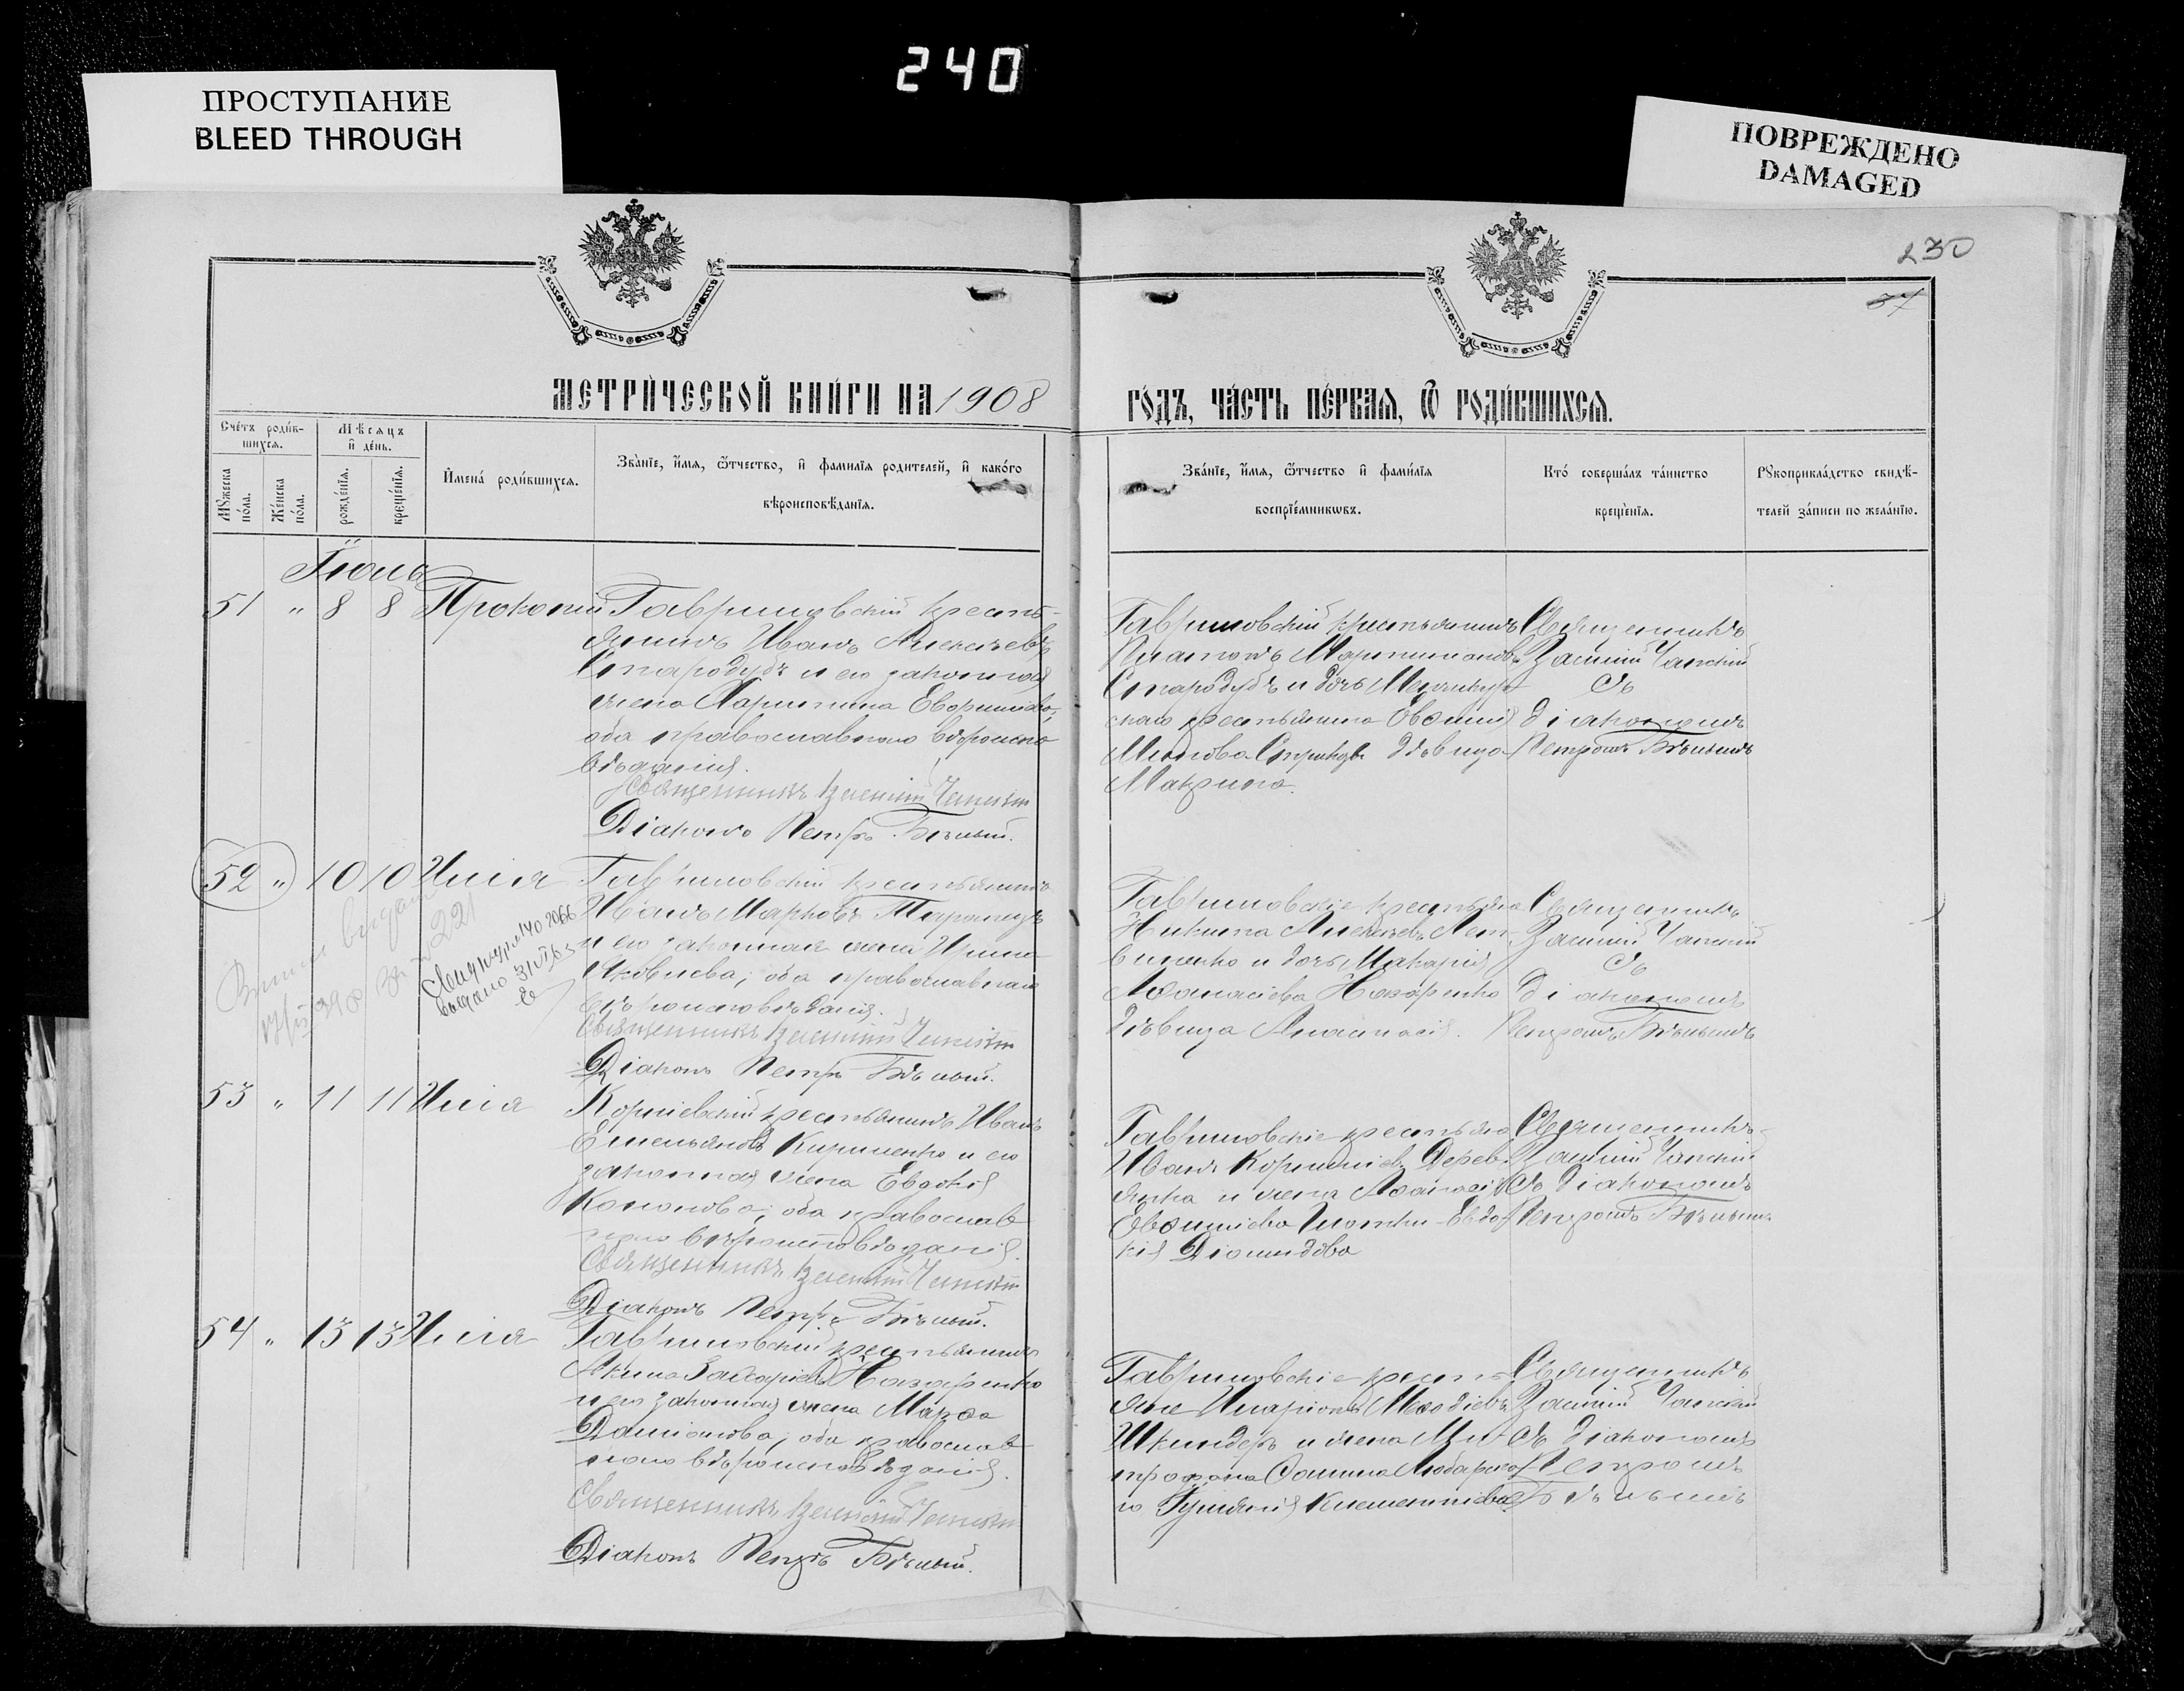 240
ПРОСТУПАНИЕ
BLEED THROUGH
ПОВРЕЖДЕНО
DAMAGED
230
37
МЕТРИ́ЧЕСКОЙ КНИ́ГИ НА 1908
ГО́ДЪ, ЧА́СТЬ ПЕ́РВАѦ, Ѿ РОДИ́ВШИХСѦ.
Сче́тъ роди́в-
шихсѧ.
Мѣсѧцъ
и҆ де́нь.
Мꙋжеска
по́ла.
Же́нска
по́ла.
рожде́нїѧ.
креще́нїѧ.
И҆мена̀ роди́вшихсѧ.
Зва́нїе, и҆́мѧ, ѻ҆́тчество, и҆ фамилїѧ родителей, и҆ како́гѡ
вѣроисповѣданїѧ.
Зва́нїе, и҆́мѧ, ѻ҆́тчество и҆ фами́лїѧ
воспрїе́мникѡвъ.
Кто̀ соверша́лъ та́инство
креще́нїѧ.
Рꙋкоприкла́дство свидѣ́-
телей за́писи по жела́нїю.
Іюль
51 " 8 8 Прокопій
Гавриловскій кресть-
янинъ Иванъ Алексѣевъ
Стародубъ и его законная
жена Харитина
оба православнаго вѣроиспо-
вѣданія.
Священникъ
Діаконъ Петръ Бѣлый.
Гавриловскій крестьянинъ
Платонъ Мартиніановъ
Стародубъ и дочь
скаго крестьянина Евѳимія
дѣвица
Макрина.
Священникъ
Василій
Съ
діакономъ
Петромъ Бѣлымъ
52 " 10 10 Илія
Гавриловскій крестьянинъ
Иванъ Марковъ Таранецъ
и его законная жена Ирина
Яковлева; оба православнаго
вѣроисповѣданія.
Священникъ
Діаконъ Петръ Бѣлый.
221
2066
выдано
Гавриловскіе крестьяне
Никита Алексѣевъ Лит-
виненко и дочь Макарія
Аѳанасіева Назаренко
дѣвица Анастасія.
Священникъ
Василій
Съ
діакономъ
Петромъ Бѣлымъ
53 " 11 11 Илія
Корніевскій крестьянинъ Иванъ
Емельяновъ Кириленко и его
законная жена Евдокія
Кононова; оба православ-
наго вѣроисповѣданія.
Священникъ
Діаконъ Петръ Бѣлый.
Гавриловскіе крестьяне
Иванъ Корниліевъ Дерев-
янко и жена Аѳанасія
Евѳиміева Евдо-
кія Діомидова
Священникъ
Василій
Съ діакономъ
Петромъ Бѣлымъ
54 " 13 13 Илія
Гавриловскій крестьянинъ
Захаріевъ Назаренко
и его законная жена Марѳа
Даміанова; оба православ-
наго вѣроисповѣданія.
Священникъ
Діаконъ Петръ Бѣлый.
Гавриловскіе кресть-
яне Иларіонъ Меѳодіевъ
Шкиндеръ и жена Ми-
трофана
Климентіева
Священникъ
Василій
Съ діакономъ
Петромъ
Бѣлымъ